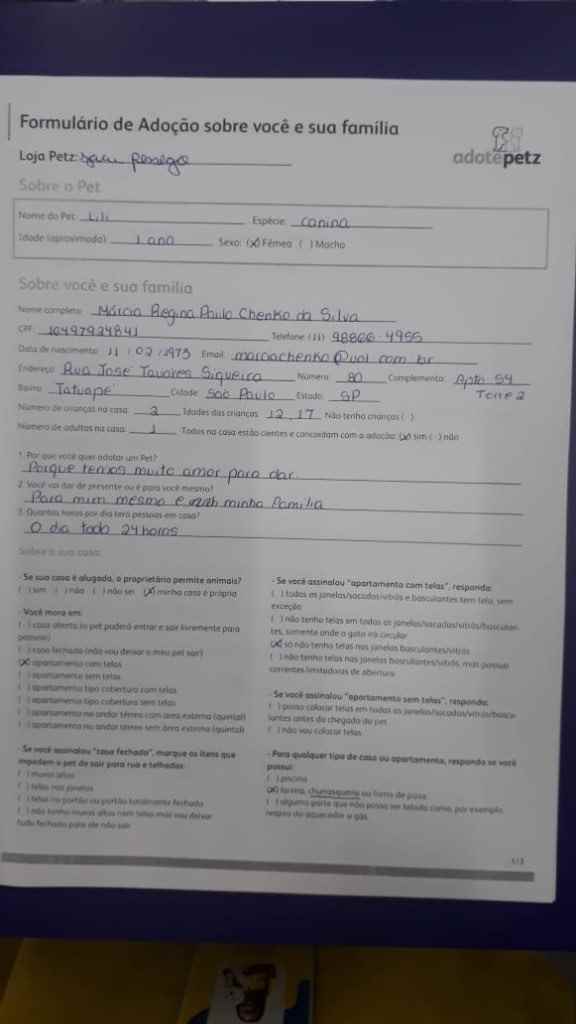 Formulário de Adoção sobre você e sua família
adotepetz
Loja Petz:
Sobre o Pet
Nome do Pet: Lili Espécie: canina
Idade (aproximada): 1 ano Sexo: (X) Fêmea ( ) Macho
Sobre você e sua família
Nome completo: Márcia Regina Paulo Chenko da Silva
CPF: 10497924841 Telefone: (11) 98866-4955
Data de nascimento: 11/02/1973 Email: marciachenko@uol.com.br
Endereço: Rua José Tavares Siqueira Número: 80 Complemento: Apto 54
Bairro: Tatuapé Cidade: São Paulo Estado: SP Torre 2
Número de crianças na casa: 2 Idades das crianças: 12, 17 Não tenho crianças ( )
Número de adultos na casa: 1 Todos na casa estão cientes e concordam com a adoção: (X) sim ( ) não
1. Por que você quer adotar um Pet?
Porque temos muito amor para dar
2. Você vai dar de presente ou é para você mesmo?
Para mim mesmo e minha família
3. Quantas horas por dia terá pessoas em casa?
O dia todo 24 horas
Sobre a sua casa:
- Se sua casa é alugada, o proprietário permite animais?
( ) sim ( ) não ( ) não sei (X) minha casa é própria
- Você mora em:
( ) casa aberta (o pet poderá entrar e sair livremente para
passear)
( ) casa fechada (não vou deixar o meu pet sair)
(X) apartamento com telas
( ) apartamento sem telas
( ) apartamento tipo cobertura com telas
( ) apartamento tipo cobertura sem telas
( ) apartamento no andar térreo com área externa (quintal)
( ) apartamento no andar térreo sem área externa (quintal)
- Se você assinalou "casa fechada", marque os itens que
impedem o pet de sair para rua e telhados:
( ) muros altos
( ) telas nas janelas
( ) telas no portão ou portão totalmente fechado
( ) não tenho muros altos nem telas mas vou deixar
tudo fechado para ele não sair
- Se você assinalou "apartamento com telas", responda:
( ) todas as janelas/sacadas/vitrôs e basculantes tem tela, sem
exceção
( ) não tenho telas em todas as janelas/sacadas/vitrôs/basculan-
tes, somente onde o gato irá circular
(X) só não tenho telas nas janelas basculantes/vitrôs
( ) não tenho telas nas janelas basculantes/vitrôs, mas possuo
correntes limitadoras de abertura
- Se você assinalou "apartamento sem telas", responda:
( ) posso colocar telas em todas as janelas/sacadas/vitrôs/bascu-
lantes antes da chegada do pet
( ) não vou colocar telas
- Para qualquer tipo de casa ou apartamento, responda se você
possui:
( ) piscina
(X) lareira, churrasqueira ou forno de pizza
( ) alguma parte que não possa ser telada como, por exemplo,
respiro do aquecedor a gás
1/3